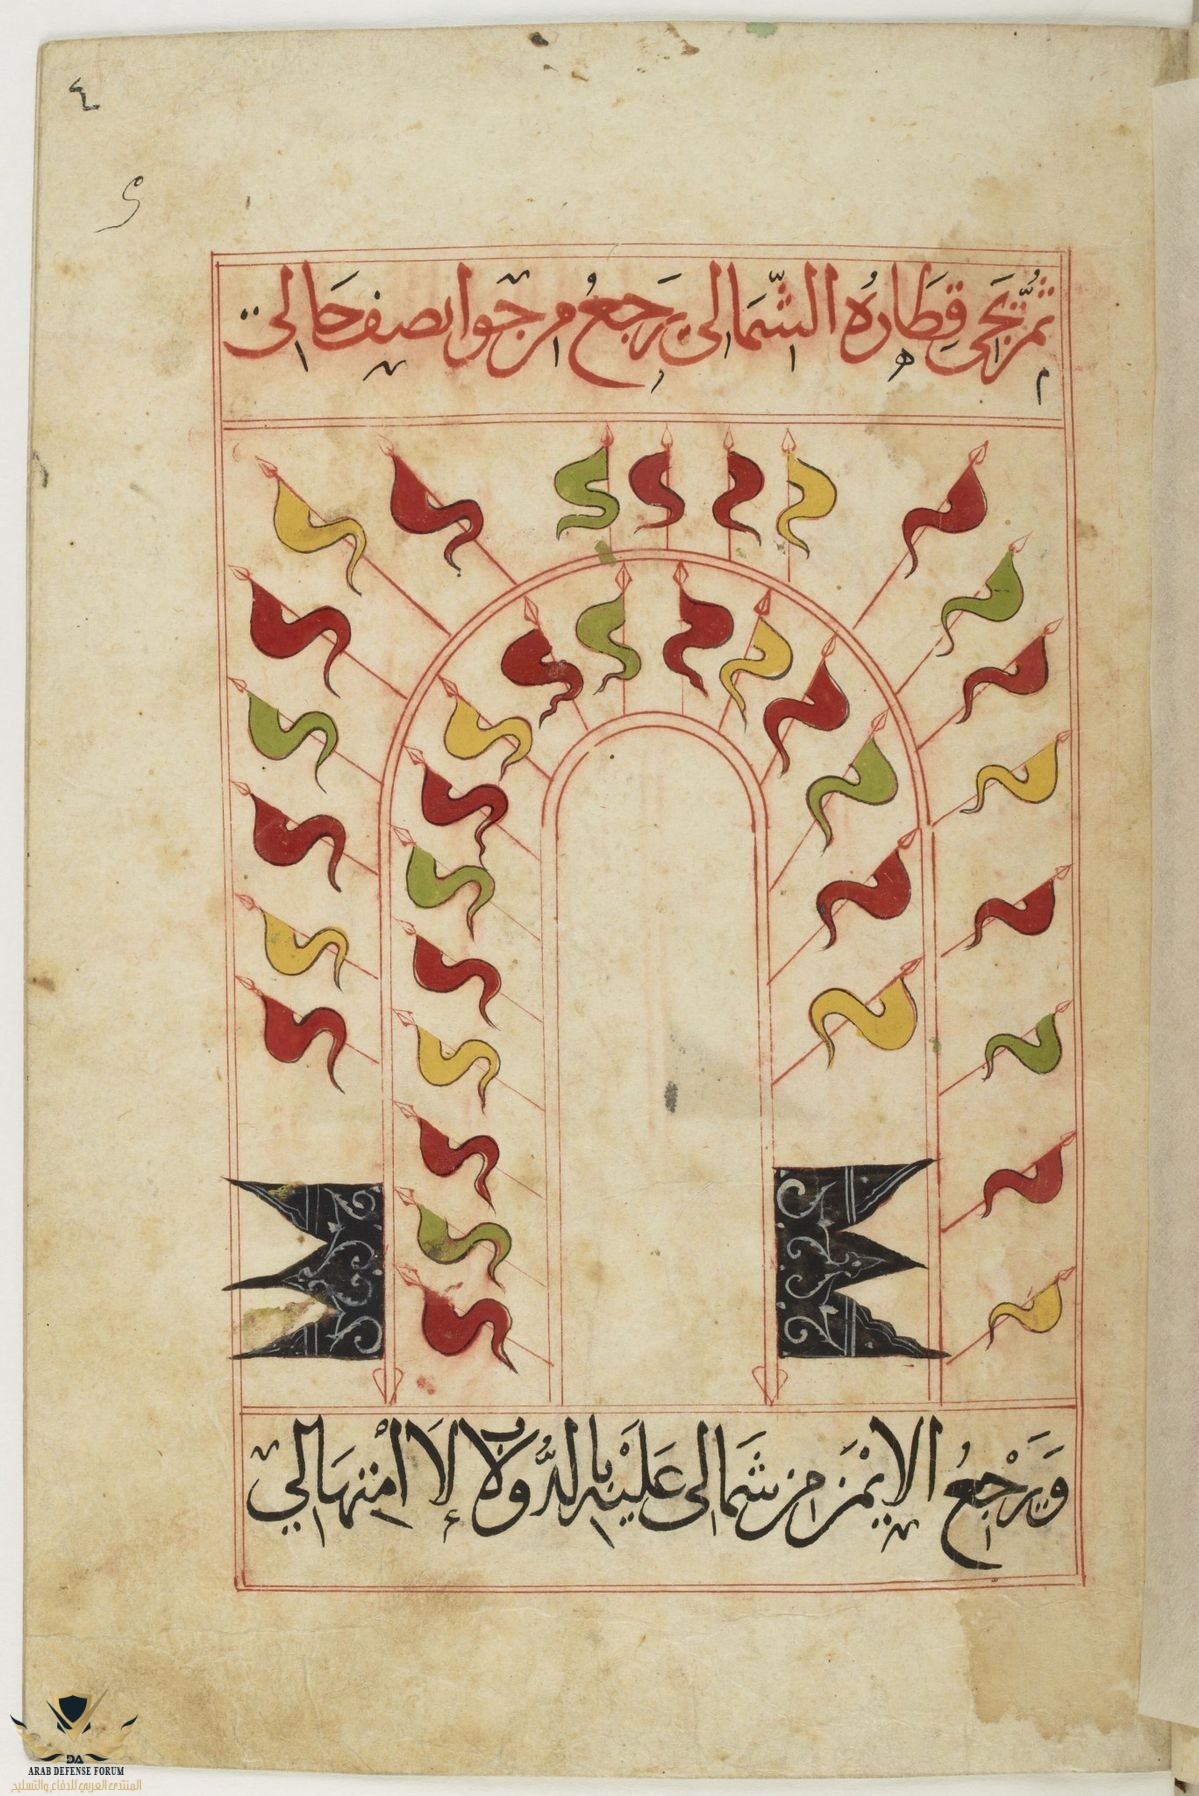 ٤
ثُمَّ تَجِي قِطَارُهُ الشَّمَالِي يَرجَعُ مِن جَوا نصف حَالِي
وَيَرْجِعُ الايْمَن مِن شَمَالِي عَلَيْه بالدُّولاب إلَا امْتِهَالِي
DA
ARAB DEFENSE FORUM
المنتدى العربي للدفاع والتسليح